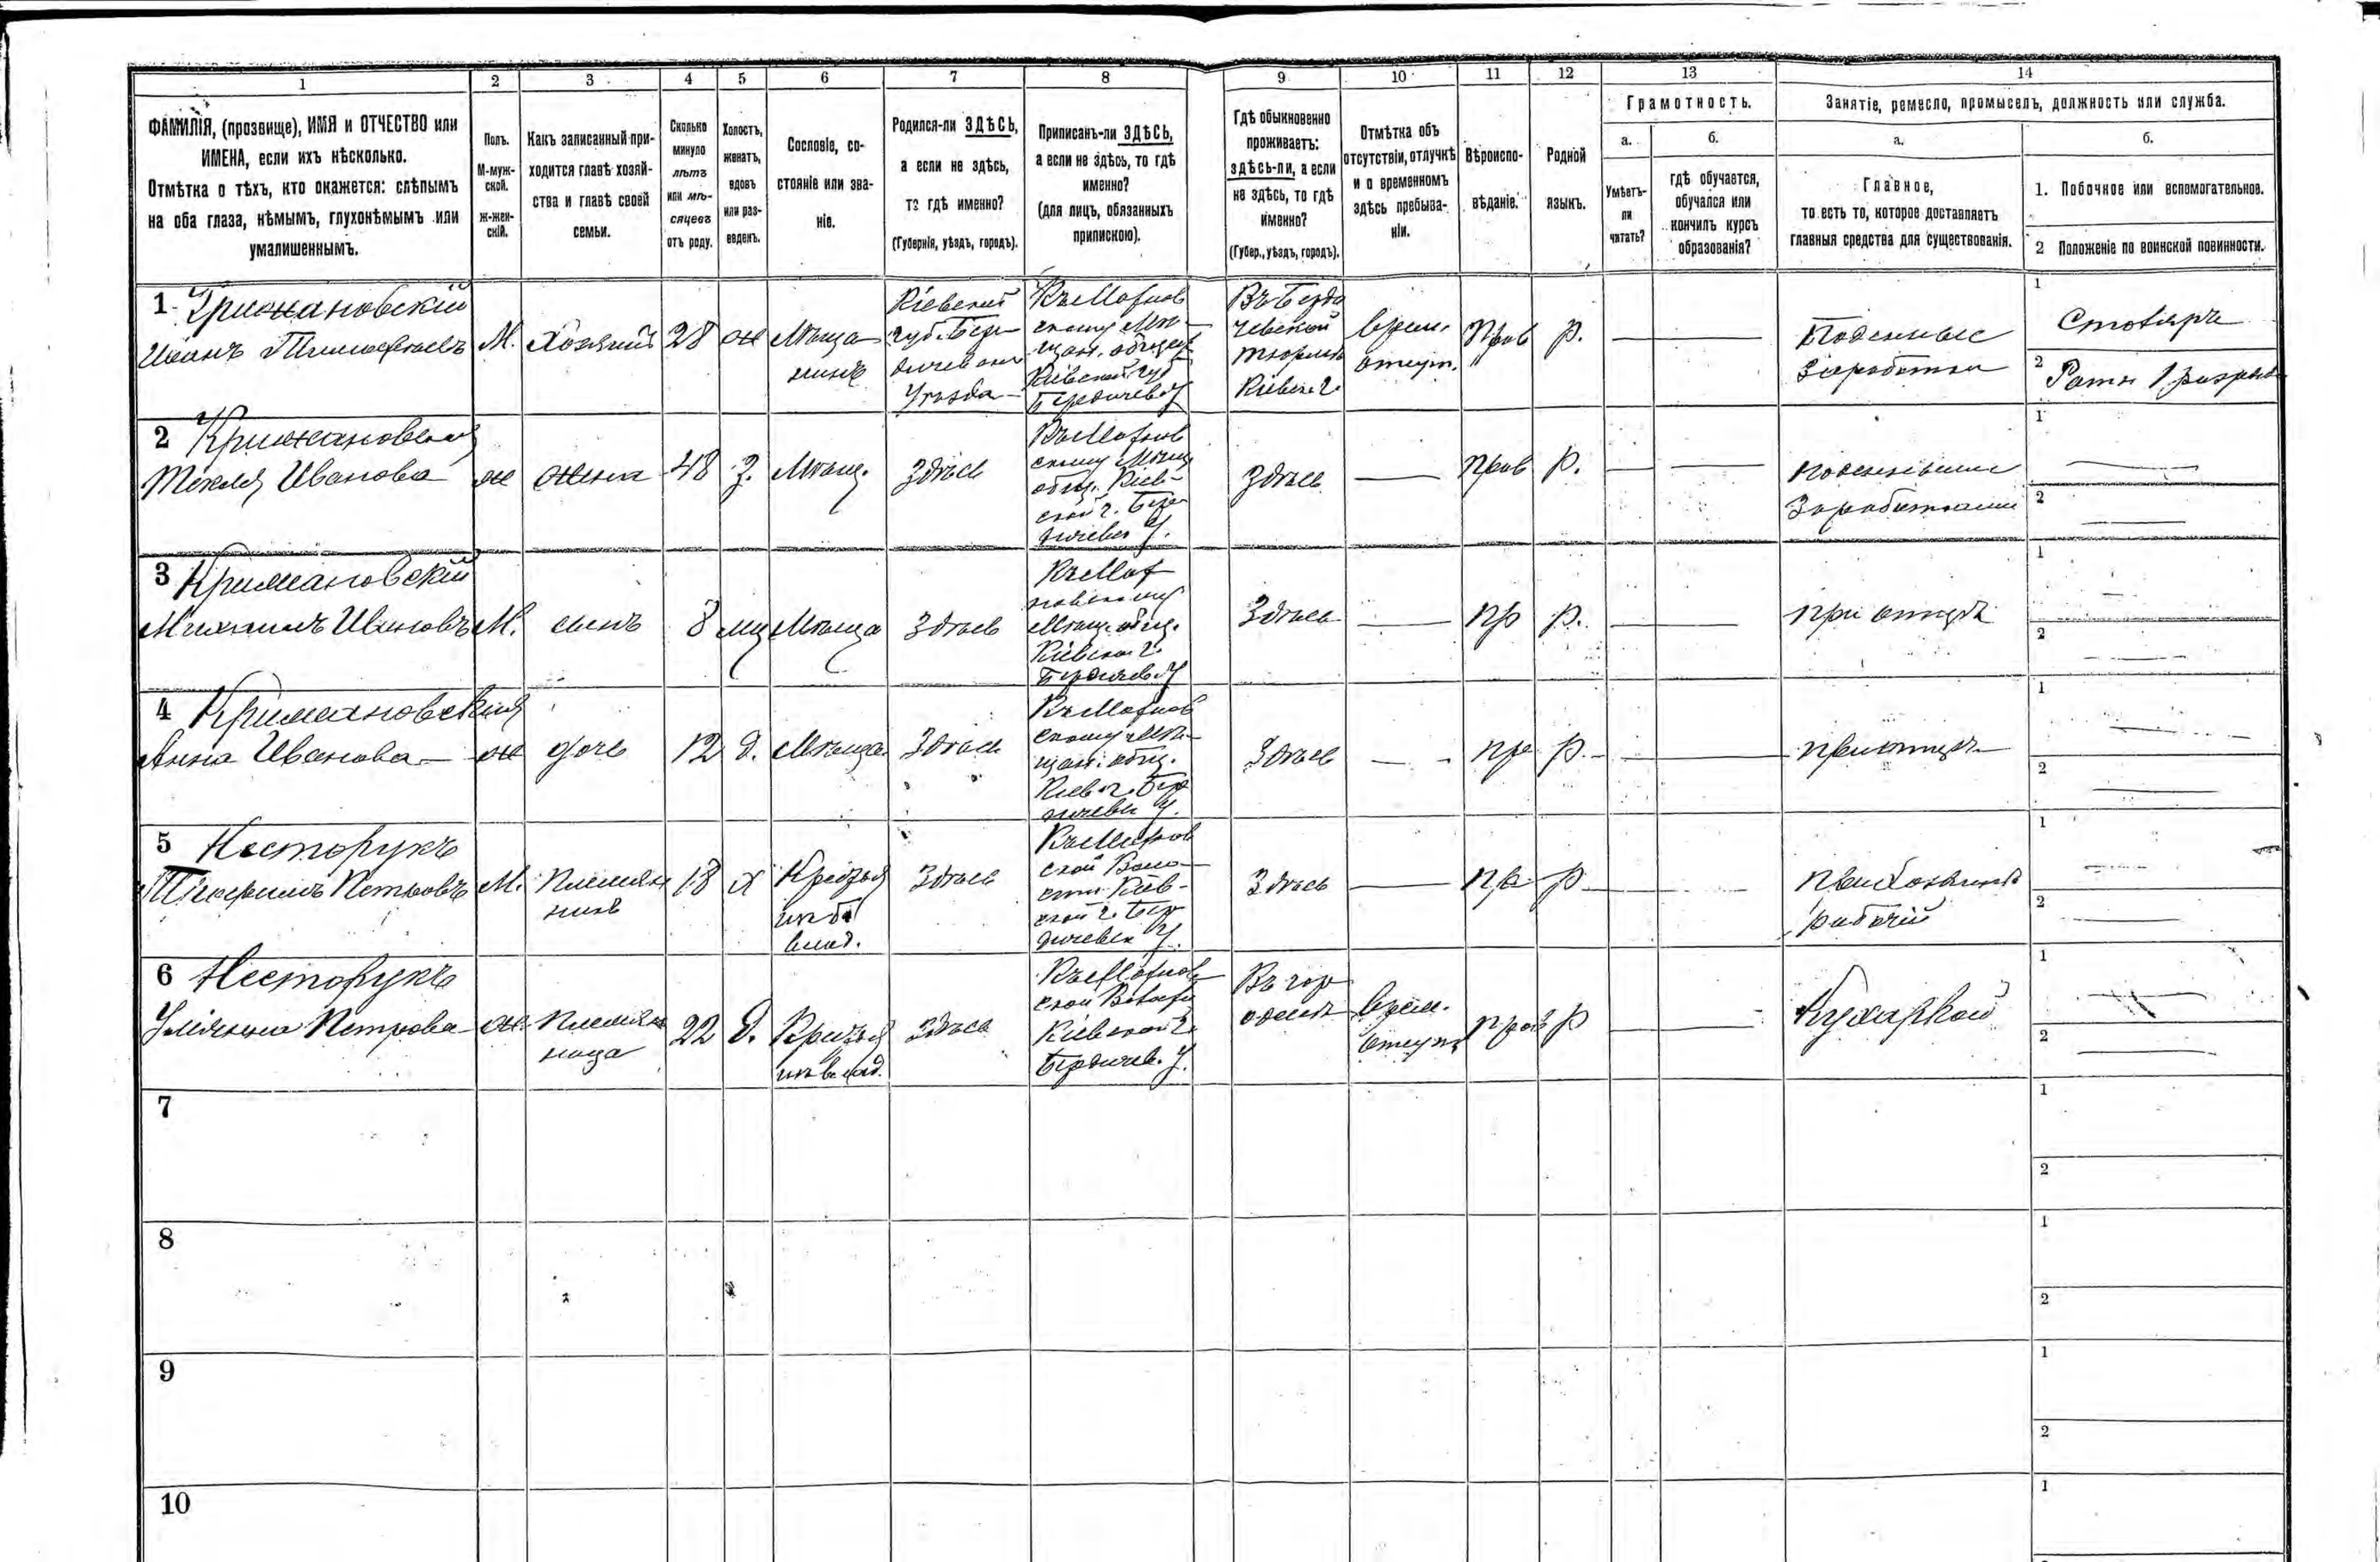 1 2 3 4 5 6 7 8 9 10 11 12 13 14
ФАМИЛІЯ, (прозвище), ИМЯ и ОТЧЕСТВО или
ИМЕНА, если ихъ нѣсколько.
Отмѣтка о тѣхъ, кто окажется: слѣпымъ
на оба глаза, нѣмымъ, глухонѣмымъ или
умалишеннымъ.
Полъ.
М-муж-
ской.
Ж-жен-
скій.
Какъ записанный при-
ходится главѣ хозяй-
ства и главѣ своей
семьи.
Сколько
минуло
лѣтъ
или мѣ-
сяцевъ
отъ роду.
Холостъ,
женатъ,
вдовъ
или раз-
веденъ.
Сословіе, со-
стояніе или зва-
ніе.
Родился-ли ЗДѢСЬ,
а если не здѣсь,
то гдѣ именно?
(Губернія, уѣздъ, городъ).
Приписанъ-ли ЗДѢСЬ,
а если не здѣсь, то гдѣ
именно?
(для лицъ, обязанныхъ
припискою).
Гдѣ обыкновенно
проживаетъ:
здѣсь-ли, а если
не здѣсь, то гдѣ
именно?
(Губер., уѣздъ, городъ).
Отмѣтка объ
отсутствіи, отлучкѣ
и о временномъ
здѣсь пребыва-
ніи.
Вѣроиспо-
вѣданіе.
Родной
языкъ.
Грамотность.
а.
Умѣетъ-
ли
читать?
б.
гдѣ обучается,
обучался или
кончилъ курсъ
образованія?
Занятіе, ремесло, промыселъ, должность или служба.
а.
Главное,
то есть то, которое доставляетъ
главныя средства для существованія.
б.
1. Побочное или вспомогательное.
2 Положеніе по воинской повинности.
1
Иванъ
М.
Хозяинъ
28
ж
Мѣща
нинъ
Кіевской
губ. Бер
дичевск
Уѣзда
Къ Махнов
скому Мѣ
щан. общес
Кіевской губ
Бердичев У
Въ Берди
чевской
тюрьмѣ
Кіевск. г
врем.
отсут.
Прав
р.
Поденные
Заработки
1
Столяръ
2
Ратн 1 разряда
2 Крижановская
Текля Иванова
ж
жена
48
з.
Мѣщ.
Здѣсь
Къ Махнов
скому Мѣщ
общ. Кіев-
ской г. Бер
дичевск У.
Здѣсь
прав
р.
поденными
Заработками
1
2
3 Крижановскій
Михаилъ Ивановъ
М.
сынъ
8
Мѣща
Здѣсь
Къ Мах
новскому
Мѣщ. общ.
Кіевской г.
Бердичев У
Здѣсь
пр
р.
при отцѣ
1
2
4 Крижановская
Анна Иванова
ж
дочь
12
д.
Мѣща
Здѣсь
Къ Махнов
скому Мѣ
щан. общ.
Кіев г. Бер
дичевск У.
Здѣсь
пр
р.
при отцѣ
1
2
5 Несторукъ
Петровъ
М.
племян
никъ
18
х
Крестья
изъ б.
влад.
Здѣсь
Къ Махнов
ской Воло
сти Кіев-
ской г. Бер
дичевск У.
Здѣсь
пр
р
рабочій
1
2
6 Несторукъ
Петрова
ж.
племян
ница
22
д.
Крестья
изъ влад.
Здѣсь
Къ Махнов
ской Волости
Кіевской г.
Бердичев. У.
врем.
отсут
прав
р
Кухаркой
1
2
7
1
2
8
1
2
9
1
2
10
1